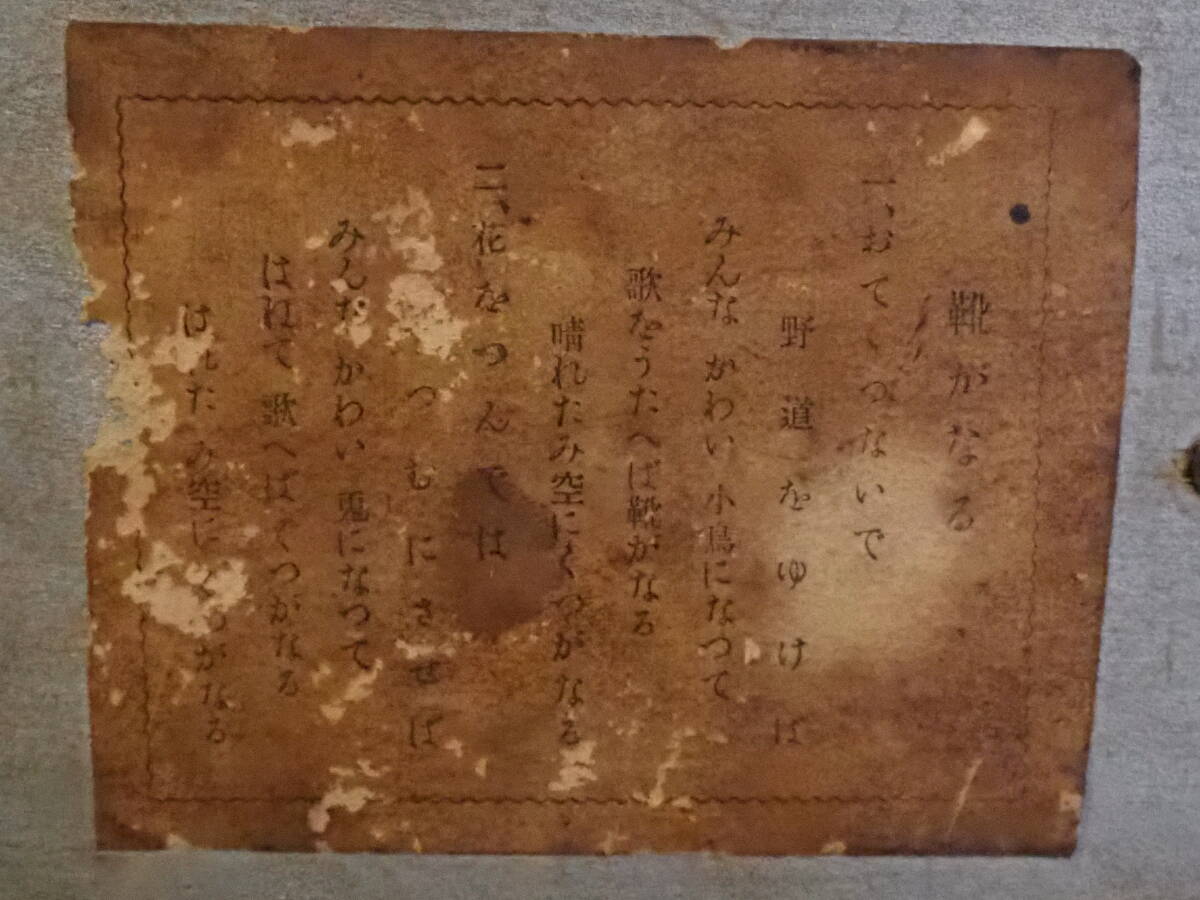 靴がなる
一、おてゝつないで
野道をゆけば
みんなかわい小鳥になつて
歌をうたへば靴がなる
晴れたみ空にくつがなる
二、花をつんでは
つむにさせば
みんなかわい兎になつて
はねて歌へばくつがなる
はれたみ空にくつがなる